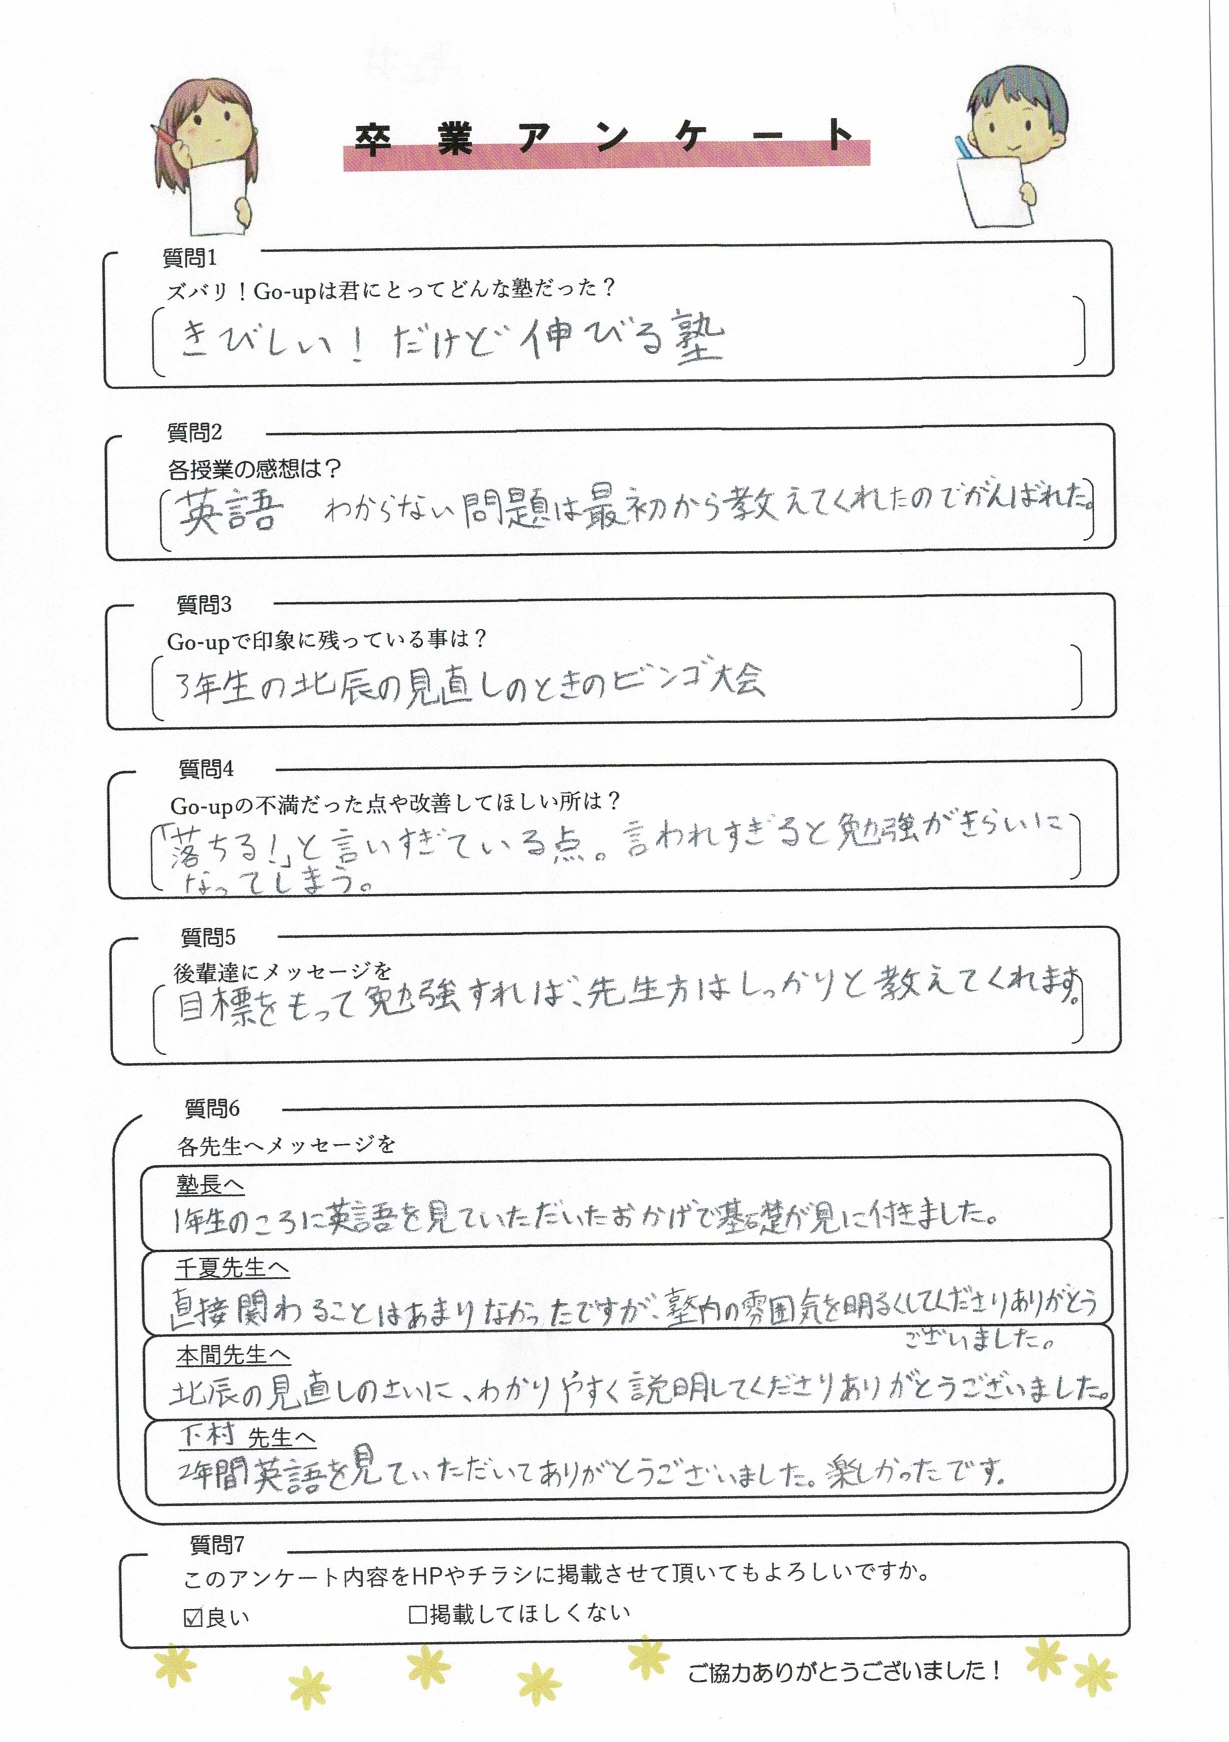 卒業アンケート
質問1
ズバリ！Go-upは君にとってどんな塾だった？
きびしい！だけど伸びる塾
質問2
各授業の感想は？
英語　わからない問題は最初から教えてくれたのでがんばれた。
質問3
Go-upで印象に残っている事は？
3年生の北辰の見直しのときのビンゴ大会
質問4
Go-upの不満だった点や改善してほしい所は？
「落ちる！」と言いすぎている点。言われすぎると勉強がきらいに
なってしまう。
質問5
後輩達にメッセージを
目標をもって勉強すれば、先生方はしっかりと教えてくれます。
質問6
各先生へメッセージを
塾長へ
1年生のころに英語を見ていただいたおかげで基礎が見に付きました。
千夏先生へ
直接関わることはあまりなかったですが、塾内の雰囲気を明るくしてくださりありがとう
ございました。
本間先生へ
北辰の見直しのさいに、わかりやすく説明してくださりありがとうございました。
下村 先生へ
2年間英語を見ていただいてありがとうございました。楽しかったです。
質問7
このアンケート内容をHPやチラシに掲載させて頂いてもよろしいですか。
☑良い　□掲載してほしくない
ご協力ありがとうございました！